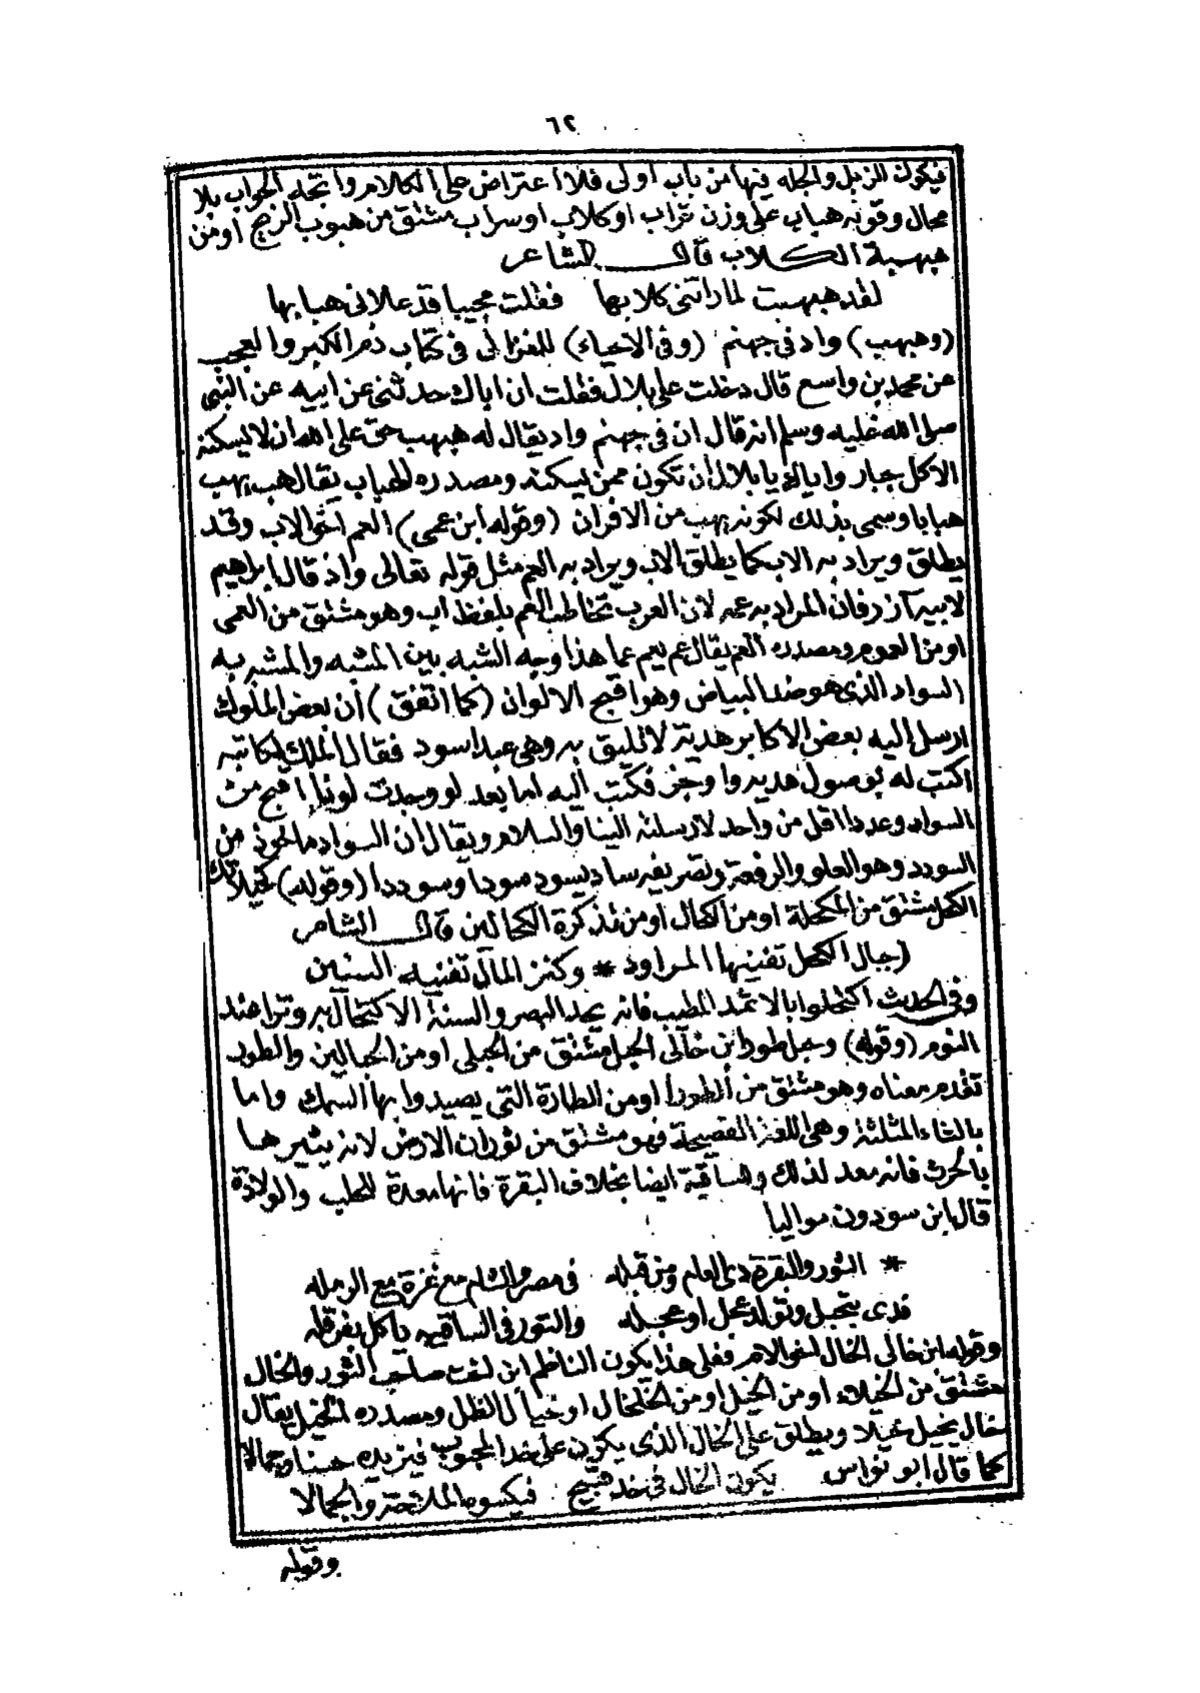 ٦٢
فيكون للزبل والجله ينها من باب اولى فلا اعتراض على الكلام واتجه الجواب بلا
محال وقوله هباب على وزن تراب او كلاب او سراب مشتق من هبوب الريح او من
هبهبة الكلاب قال الشاعر
لقد هبهبت لما راتنى كلابها فقلت مجيبا قد علانى هبابها
(وهبهب) واد فى جهنم (وفى الاحياء) للغزالى فى كتاب ذم الكبر والعجب
عن محمد بن واسع قال دخلت على بلال فقلت ان اباك حدثنى عن ابيه عن النبى
صلى الله عليه وسلم انه قال ان فى جهنم واد يقال له هبهب حق على الله ان لا يسكنه
الا كل جبار واياك يا بلال ان تكون ممن يسكنه ومصدره الهباب يقال هب يهب
هبابا وسمى بذلك لكونه يهب من الافران (وقوله ابن عمى) العم اخو الاب وقد
يطلق ويراد به الاب كما يطلق الاب ويراد به العم مثل قوله تعالى واذ قال ابراهيم
لابيه آزر فان المراد به عمه لان العرب تخاطب العم بلفظ اب وهو مشتق من العمى
او من العموم ومصدره العم يقال عم يعم عما هذا وجه الشبه بين المشبه والمشبه به
السواد الذى هو ضد البياض وهو اقبح الالوان (كما اتفق) ان بعض الملوك
ارسل اليه بعض الاكابر هدية لا تليق به وهى عبد اسود فقال الملك لكاتبه
اكتب له بوصول هديه واوجز فكتب اليه اما بعد لو وجدت لونا اقبح من
السواد وعددا اقل من واحد لارسلته الينا والسلام ويقال ان السواد ماخوذ من
السودد وهو العلو والرفعة وتصريفه ساد يسود سودا وسوددا (وقوله) كحيلاتك
الكحل مشتق من المكحلة او من الكحال او من تذكرة الكحالين قال الشاعر
(جبال الكحل تفنيها المراود * وكنز المال تفنيه السنين
وفى الحديث اكتحلوا بالاثمد المطيب فانه يحد البصر والسنة الاكتحال به وترا عند
النوم (وقوله) وحبل طور ابن خالى الحبل مشتق من الحبلى او من الحبالين والطور
تقدم معناه وهو مشتق من الطور او من الطارة التى يصيدوا بها السمك واما
بالثاء المثلثة وهى اللغة الفصيحة فهو مشتق من ثوران الارض لانه يثيرها
بالحرث فانه معد لذلك والساقية ايضا بخلاف البقرة فانها معدة للحلب والولادة
قال ابن سودون مواليا
* الثور والبقرة دى العام ومن قبله فى مصر والشام مع غزة مع الرمله
قدى بتحبل وتولد عجل او عجله والتور فى الساقيه ياكل بفرقله
وقوله ابن خالى الخال اخو الام فعلى هذا يكون الناظم ابن اخت صاحب الثور والخال
مشتق من الخيلاء او من الخيل او من الخلخال او خيال الظل ومصدره الخيل يقال
خال يخيل خيلا ويطلق على الخال الذى يكون على خد المحبوب فيزيده حسنا وجمالا
كما قال ابو نواس يكون الخال فى خد قبيح فيكسوه الملاحة والجمالا
وقوله